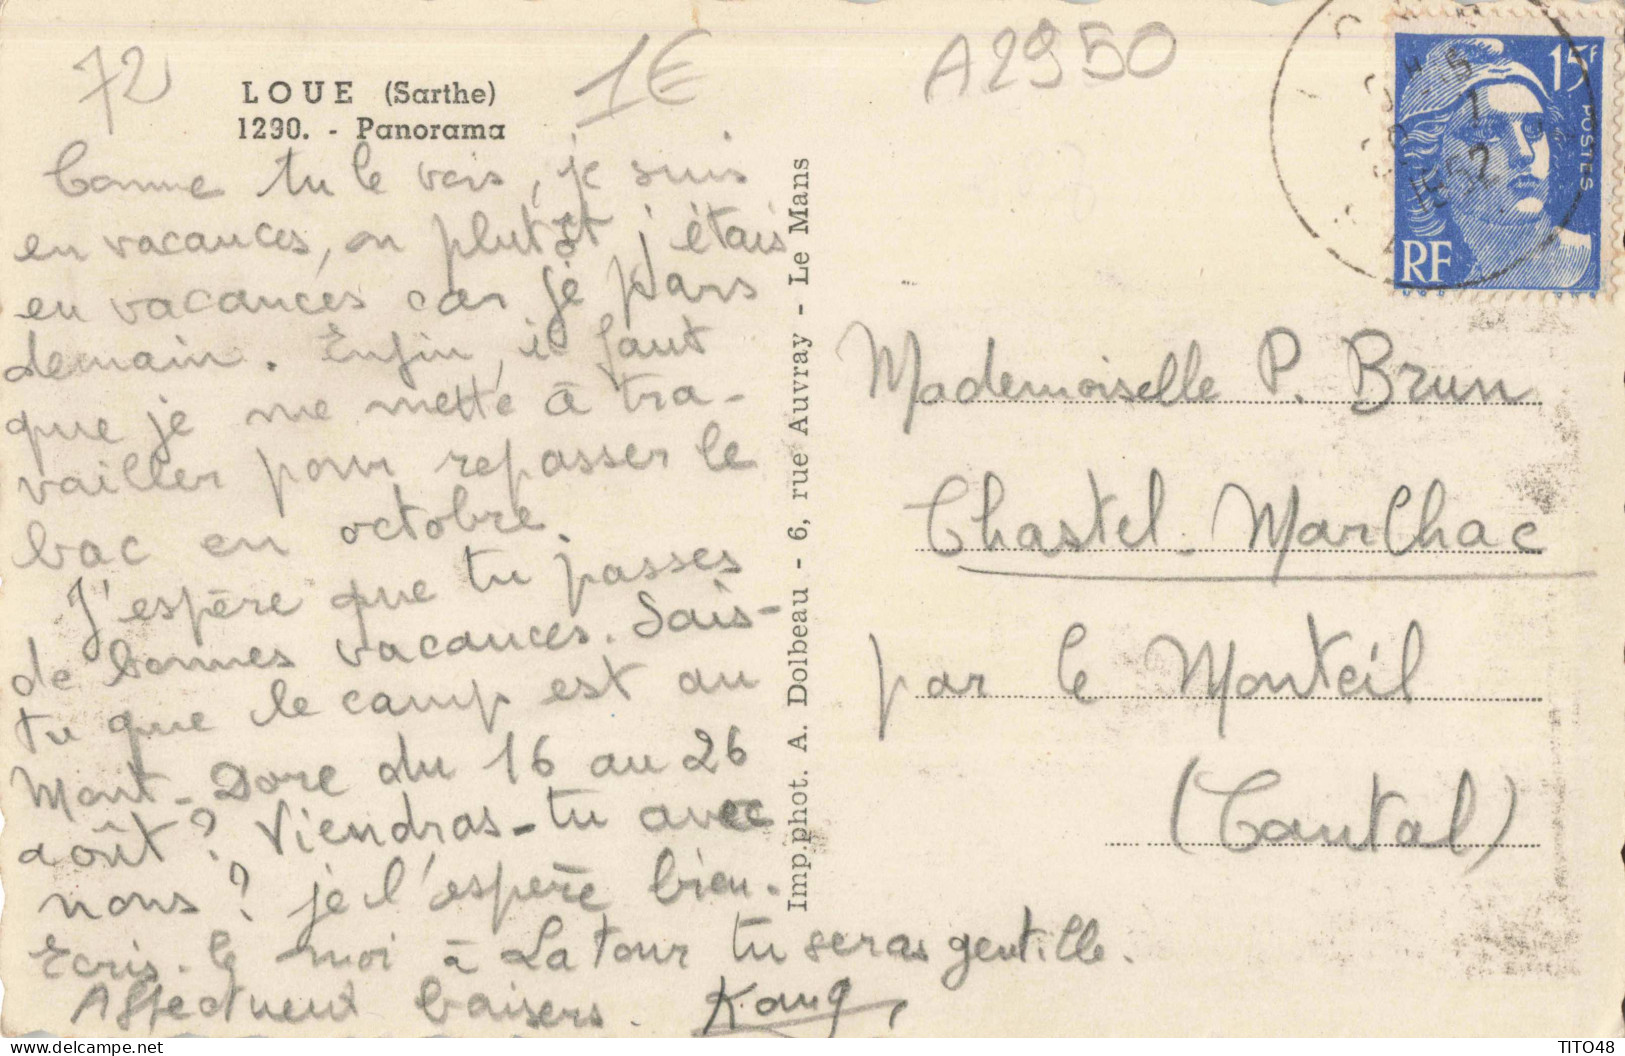 72
LOUE (Sarthe)
1290. - Panorama
1€
A2950
15F
POSTES
RF
1952
Comme tu le vois, je suis
en vacances, ou plutôt j'étais
en vacances car je pars
demain. Enfin, il faut
que je me mette à tra-
vailler pour repasser le
bac en octobre.
J'espère que tu passes
de bonnes vacances. Sais-
tu que le camp est au
Mont-Dore du 16 au 26
août ? Viendras-tu avec
nous ? je l'espère bien.
Ecris-le moi à La Tour tu seras gentille.
Affectueux baisers.
Imp. phot. A. Dolbeau - 6, rue Auvray - Le Mans
Mademoiselle P. Brun
Chastel-Marlhac
par le Monteil
(Cantal)
TITO48